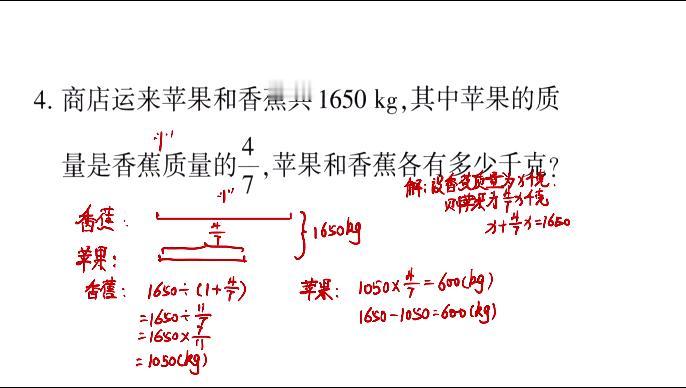 4. 商店运来苹果和香蕉共 1650 kg,其中苹果的质
"1"
量是香蕉质量的4/7,苹果和香蕉各有多少千克?
解:设香蕉质量为x千克.
则苹果为4/7x千克
x+4/7x=1650
"1"
香蕉:
4/7
1650kg
苹果:
香蕉: 1650÷(1+4/7)
=1650÷11/7
=1650×7/11
=1050(kg)
苹果: 1050×4/7=600(kg)
1650-1050=600(kg)